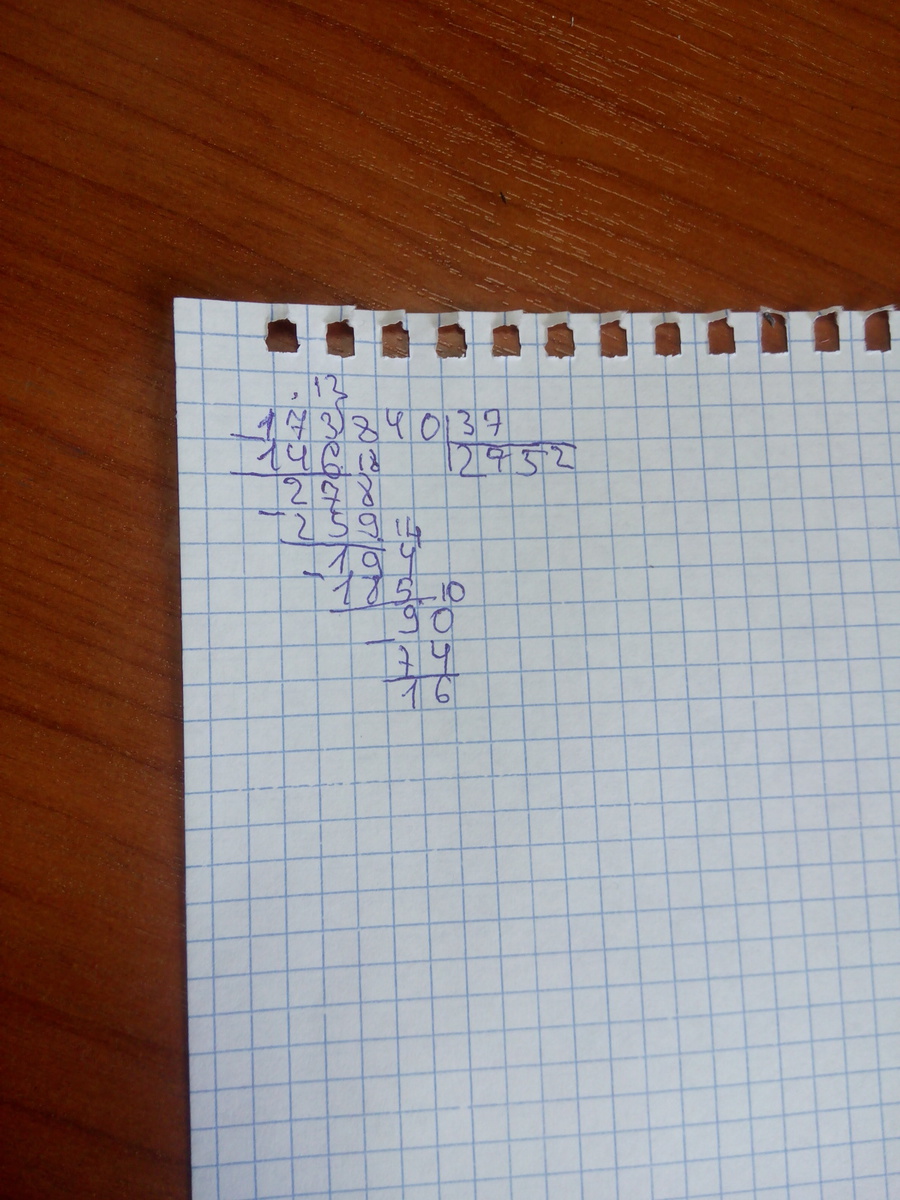 . 13
173840 37
146 18 2752
278
259 14
194
185 10
90
74
16